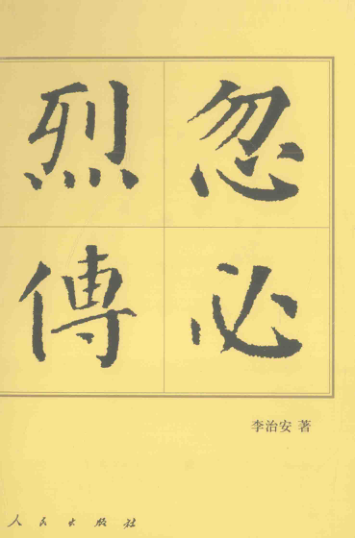 忽必
烈傳
李治安 著
人民出版社